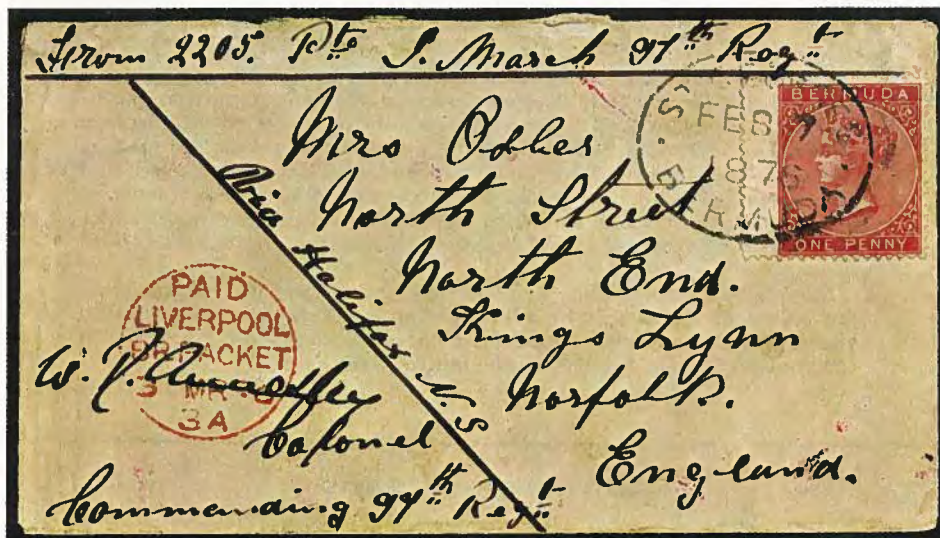 From 2205. Pte J. March 97th Regt
BERMUDA
ONE PENNY
FEB
187
BERMUDA
Mrs
North Street
North End.
Kings Lynn
Norfolk.
England.
Via Halifax N.S
PAID
LIVERPOOL
BR PACKET
MR
3A
W.
Colonel
Commanding 97th Regt